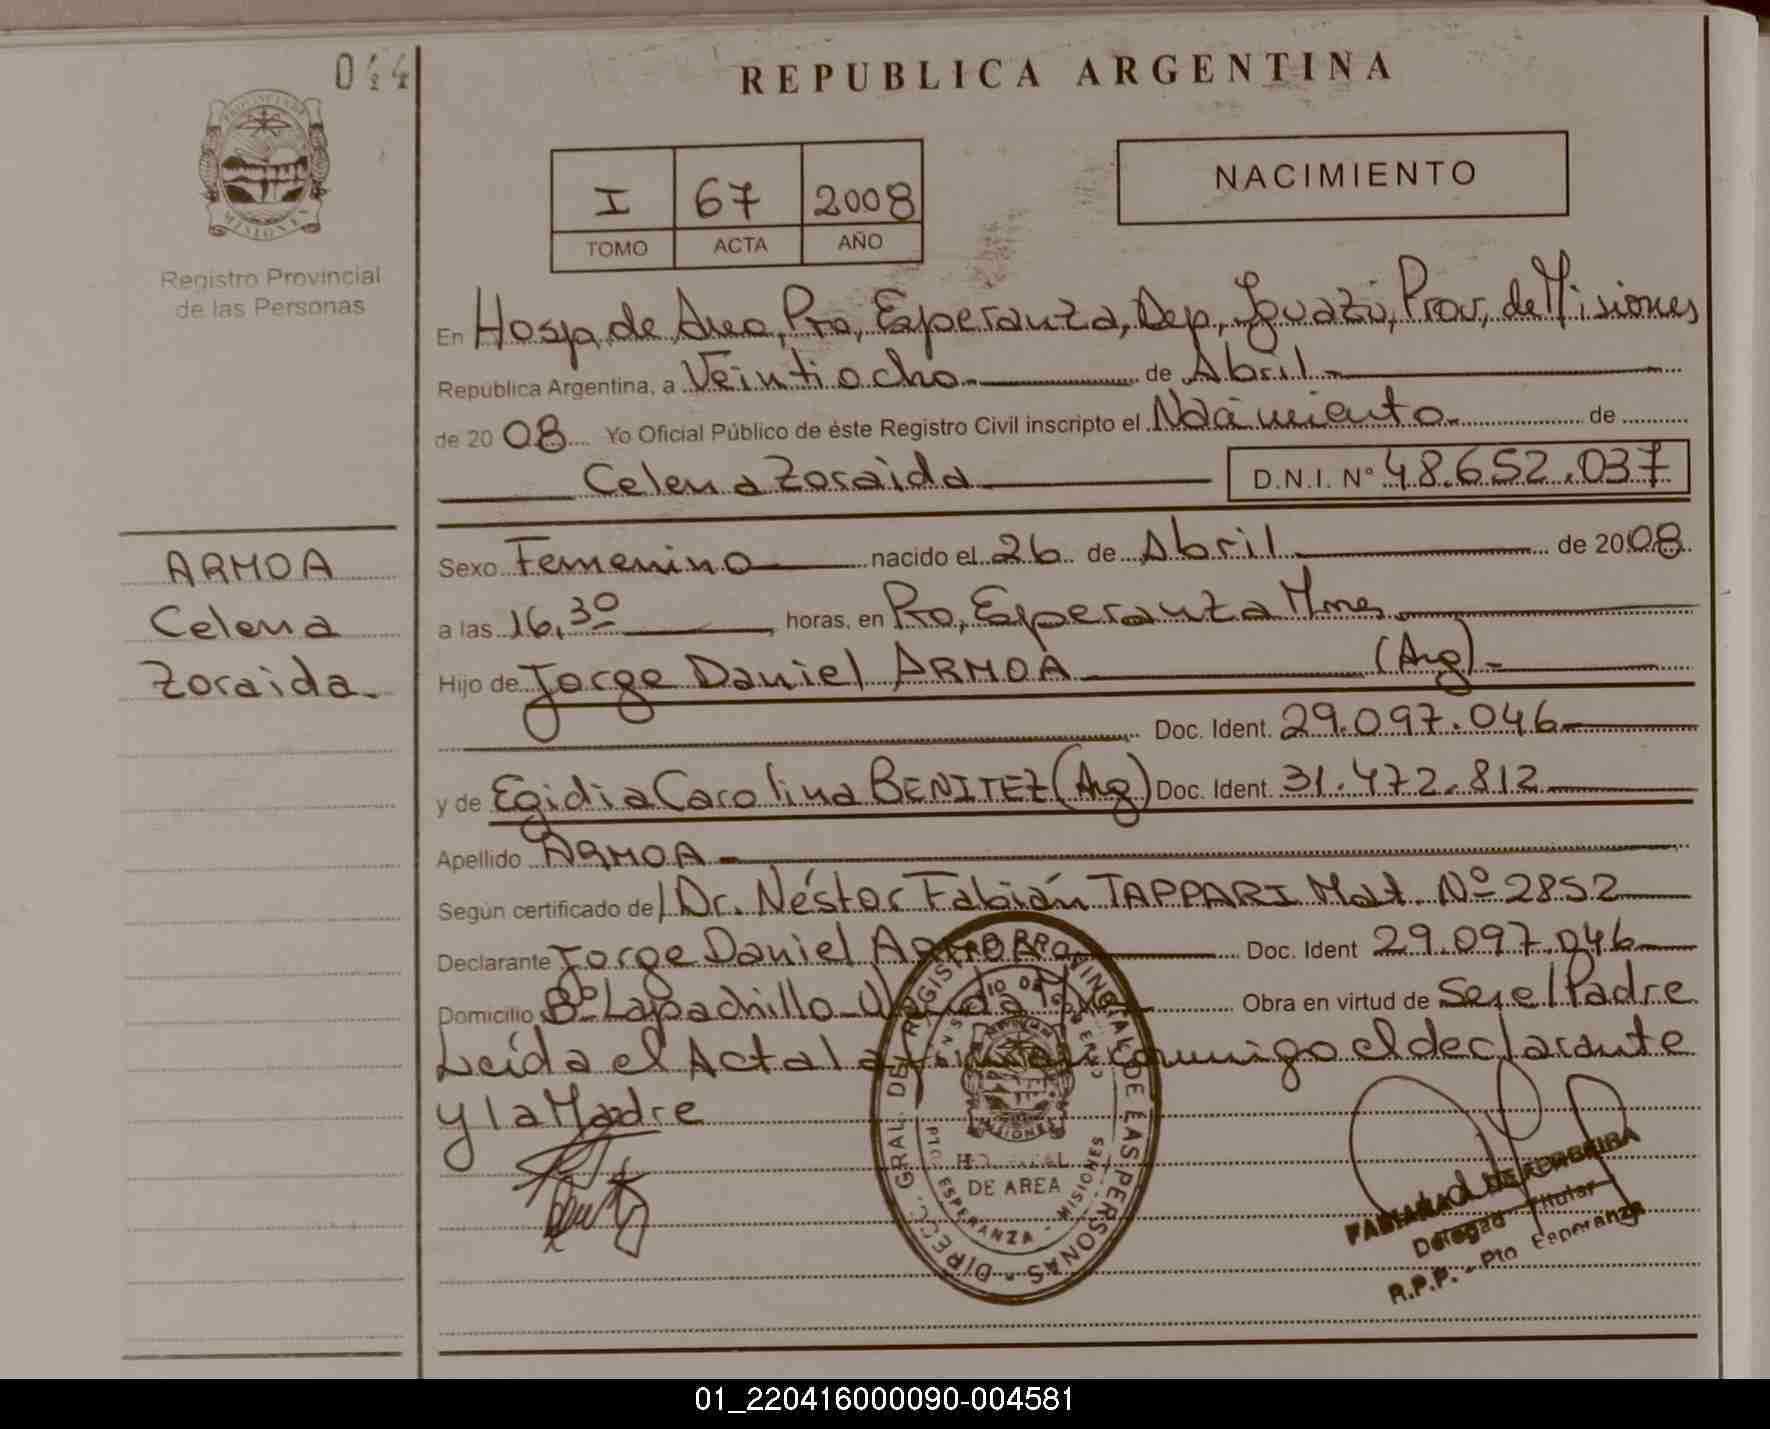 044
PROVINCIA DE
MISIONES
Registro Provincial
de las Personas
REPUBLICA ARGENTINA
I 67 2008
TOMO ACTA AÑO
NACIMIENTO
En Hosp. de Area, Pto, Esperanza, Dep, Iguazú, Prov, de Misiones
República Argentina, a Veintiocho de Abril
de 2008 Yo Oficial Público de éste Registro Civil inscripto el Nacimiento de
Celena Zoraida D.N.I. Nº 48.652.037
ARMOA
Celena
Zoraida
Sexo Femenino nacido el 26 de Abril de 2008
a las 16,30 horas, en Pto, Esperanza Mnes
Hijo de Jorge Daniel ARMOA (Arg)
Doc. Ident. 29.097.046
y de Egidia Carolina BENITEZ (Arg) Doc. Ident. 31.472.812
Apellido ARMOA
Según certificado de Dr. Néstor Fabián TAPPARI Mat. Nº 2852
Declarante Jorge Daniel ARMOA Doc. Ident 29.097.046
Domicilio Bº Lapachillo Obra en virtud de Ser el Padre
Leída el Acta la firman conmigo el declarante
y la Madre
DIRECC. GRAL. DEL REGISTRO PROVINCIAL DE LAS PERSONAS
MISIONES
HOSPITAL
DE AREA
PTO. ESPERANZA - MISIONES
FERREIRA
Titular
R.P.P. - Pto Esperanza
01_220416000090-004581